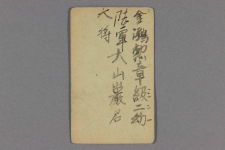 金鵄勲章級二功
陸軍大山巖
大将